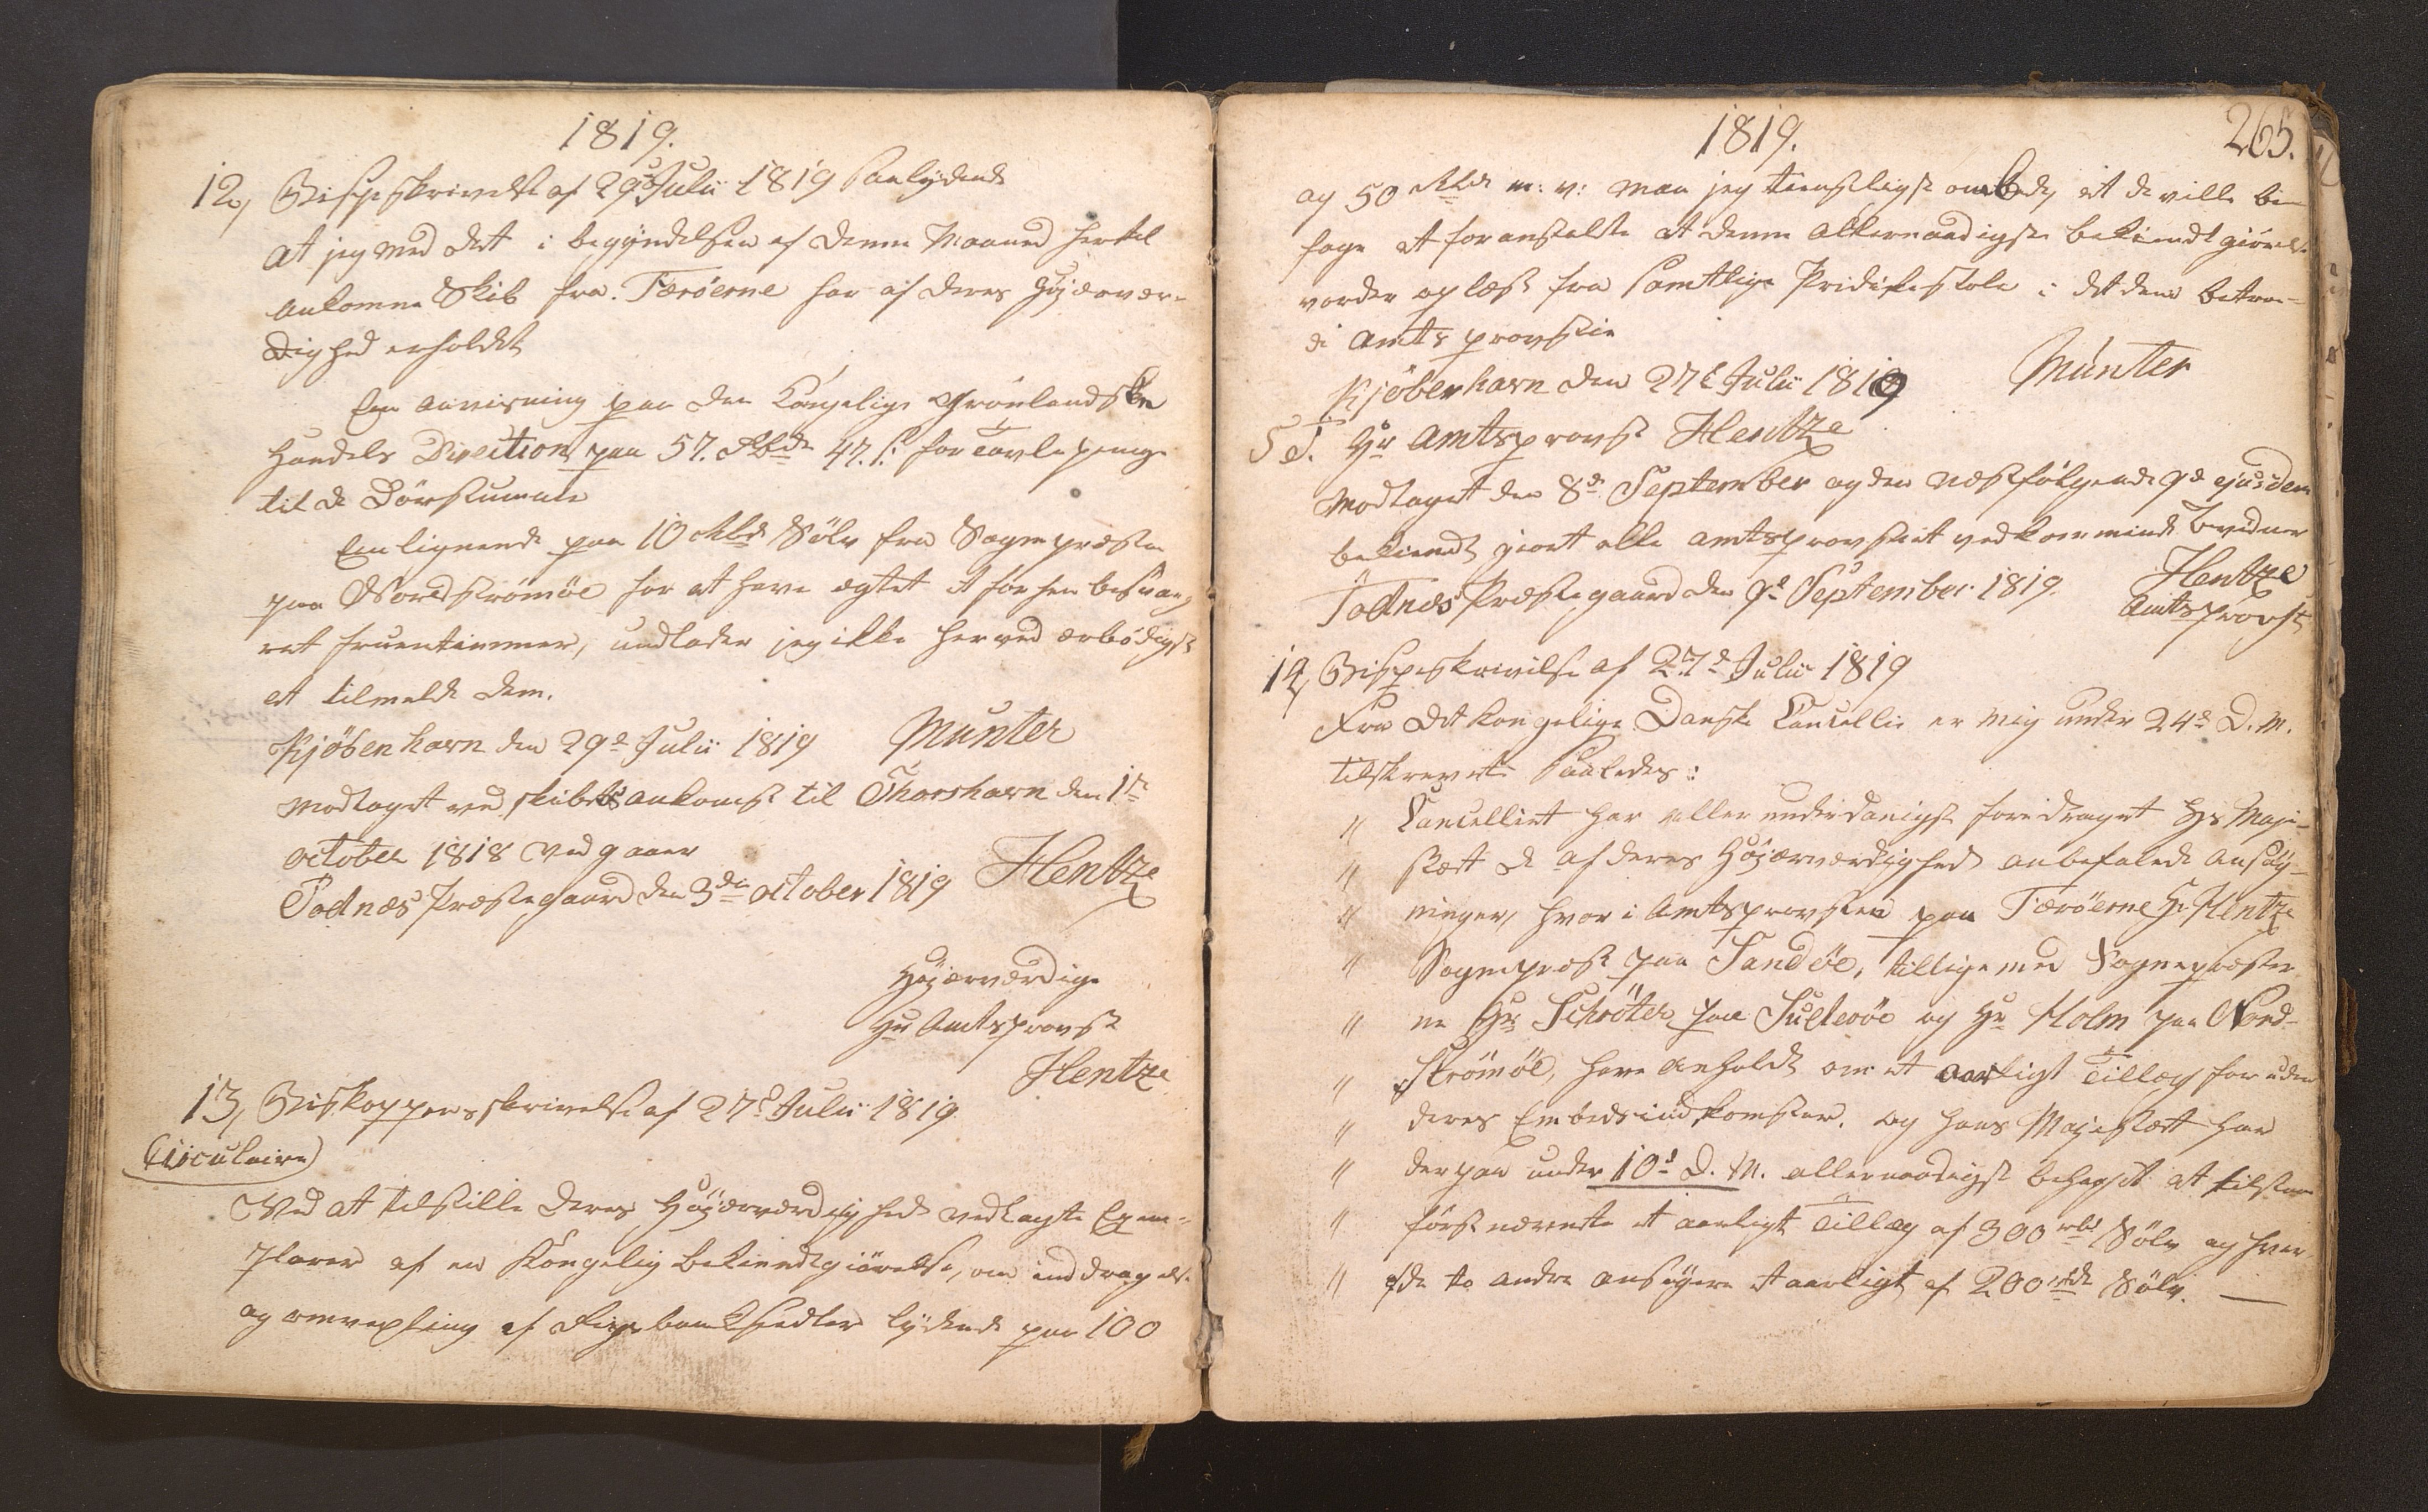 1819.
12, Bispeskrivelse af 29de Julii 1819 saalydende
At jeg med det i begyndelsen af denne Maaned hertil
ankomne Skib fra Færöerne har af deres Höjærvær-
dighed erholdet
Een anvisning paa den Kongelige Grönlandske
Handels Direction paa 57. Rbdr 47. s. for Tavlepenge
til de Döv stumme
Een lignende paa 10 Rbd Sölv fra Sognepræsten
paa Nordströmöe for at have ægtet et forhen besvan-
ret fruentimmer, undlader jeg ikke herved ærbödigst
at tilmelde dem.
Kjöbenhavn den 29de Julii 1819 Münter
Modtaget ved skibets ankomst til Thorshavn den 1te
october 1818 Vedgaaer
Todnæs Præstegaard den 3die october 1819 Hentze
Höjærværdige
Hr Amtsprovst
Hentze
13, Biskoppens skrivelse af 27de Julii 1819
(Circulaire)
Ved at tilstille deres Höjærværdighed vedlagte Exem-
plarer af en Kongelig bekiendtgiörelse, om inddragelse
og omvexling af Rigsbanksedler lydende paa 100
1819. 265.
og 50 Rbdr m: v: maa jeg tienstligst ombede, at de ville be-
sørge at foranstalte at denne allernaadigste bekiendtgiörelse
vorder oplæst fra samtlige Prædikestole i det dem betroe-
de Amts provstie
Kjöbenhavn den 27de Julii 1819 Münter
S. T. Hr Amtsprovst Hentze
Modtaget den 8de September og den næstfölgende 9de ejusdem
bekiendt giort alle amtsprovstiet vedkommende bevidner
Todnæs Præstegaard den 9de September 1819. Hentze
Amtsprovst
14, Bispeskrivelse af 27de Julii 1819
Fra det kongelige Danske Cancellie er mig under 24de D. M.
tilskrevet saaledes:
" Cancelliet har allerunderdanigst foredraget Hs Maje-
" stæt de af deres Höjærværdighed anbefalede ansög-
" ninger, hvori Amtsprovsten paa Færöerne Hr Hentze
" Sognepræst paa Sandöe, tilligemed Sognepræster-
" ne Hr Schröter paa Suderöe og Hr Holm paa Nord-
" Strömöe, have anholdt om et aarligt Tillæg foruden
" deres Embedsindkomster. og hans Majestæt har
" derpaa under 10de D. M. allernaadigst behaget at tilstaae
" förstnævnte et aarligt Tillæg af 300 rbd Sölv og hver
" af de to andre ansögere et aarligt af 200 rbd Sölv. —